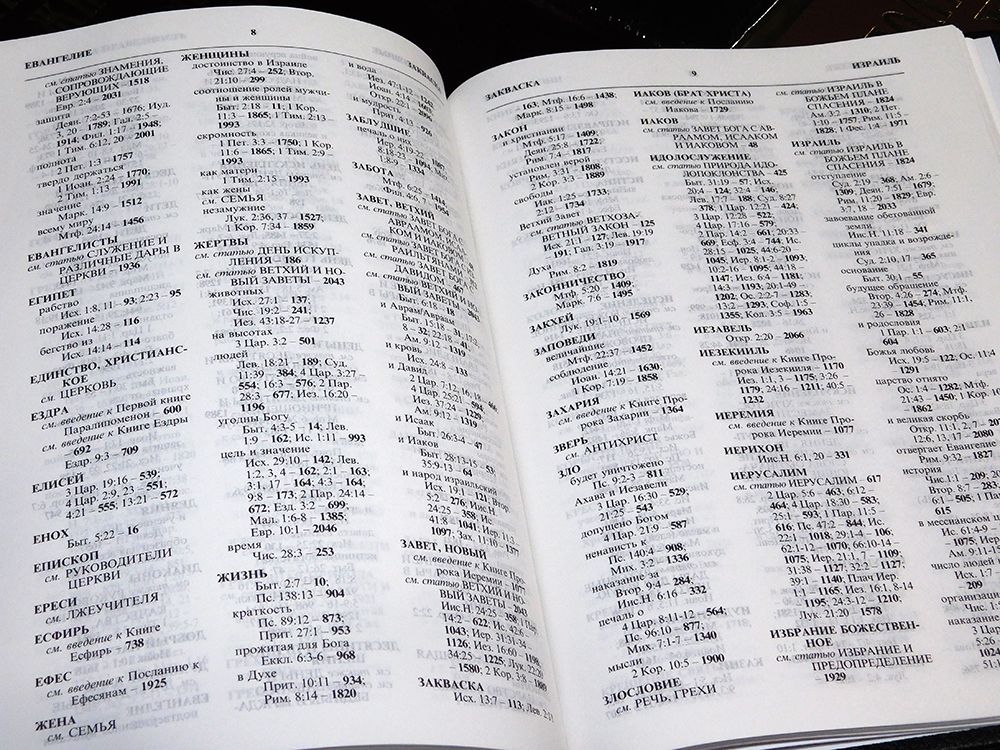 ЕВАНГЕЛИЕ
8
ЗАКВАСКА
см. статью ЗНАМЕНИЯ,
СОПРОВОЖДАЮЩИЕ
ВЕРУЮЩИХ – 1518
Евр. 2:4 – 2031
защита
Деян. 7:2-53 – 1676; Иуд.
3, 20 – 1789; Гал. 2:5 –
1914, Фил. 1:17 – 1948;
1 Тим. 6:12, 20 – 2001
полнота
2 Пет. 1:3 – 1757
твердо держаться
1 Иоан. 2:24 – 1770;
2 Тим. 1:13 – 1991
значение
Марк. 14:9 – 1512
всему миру
Мтф. 24:14 – 1456
ЕВАНГЕЛИСТЫ
см. статью СЛУЖЕНИЕ И
РАЗЛИЧНЫЕ ДАРЫ В
ЦЕРКВИ – 1936
ЕГИПЕТ
рабство
Исх. 1:8, 11– 93; 2:23 – 95
поражение
Исх. 14:28 – 116
бегство из
Исх. 14:14 – 114
ЕДИНСТВО, ХРИСТИАНС-
КОЕ
см. ЦЕРКОВЬ
ЕЗДРА
см. введение к Первой книге
Паралипоменон – 600
см. введение к Книге Ездры
– 692
Ездр. 9:3 – 709
ЕЛИСЕЙ
3 Цар. 19:16 – 539;
4 Цар. 2:9, 23 – 551;
4:21 – 555; 13:21 – 572
ЕНОХ
Быт. 5:22 – 16
ЕПИСКОП
см. РУКОВОДИТЕЛИ
ЦЕРКВИ
ЕРЕСИ
см. ЛЖЕУЧИТЕЛЯ
ЕСФИРЬ
см. введение к Книге
Есфирь – 738
ЕФЕС
см. введение к Посланию к
Ефесянам – 1925
ЖЕНА
см. СЕМЬЯ
ЖЕНЩИНЫ
достоинство в Израиле
Чис. 27:4 – 252; Втор.
21:10 – 299
соотношение ролей мужчи-
ны и женщины
Быт. 2:18 – 11; 1 Кор.
11:3 – 1865; 1 Тим. 2:13 –
1993
скромность
1 Пет. 3:3 – 1750; 1 Кор.
11:6 – 1865, 1 Тим. 2:9 –
1993
как матери
1 Тим. 2:15 – 1993
как жены
см. СЕМЬЯ
незамужние
Лук. 2:36, 37 – 1527;
1 Кор. 7:34 – 1859
ЖЕРТВЫ
см. статью ДЕНЬ ИСКУП-
ЛЕНИЯ – 186
см. статью ВЕТХИЙ И НО-
ВЫЙ ЗАВЕТЫ – 2043
животных
Исх. 27:1 – 137;
Чис. 19:2 – 241;
Иез. 43:18-27 – 1237
на высотах
3 Цар. 3:2 – 501
людей
Лев. 18:21 – 189; Суд.
11:39 – 384; 4 Цар. 3:27 –
554; 16:3 – 576; 2 Пар.
28:3 – 677; Иез. 16:20 –
1196
угодны Богу
Быт. 4:3-5 – 14; Лев.
1:9 – 162; Ис. 1:11 – 993
цель и значение
Исх. 29:10 – 142; Лев.
1:2, 3, 4 – 162; 2:1 – 163;
3:1, 17 – 164; 4:3 – 164;
9:8 – 173; 2 Пар. 24:14 –
672; Езд. 3:2 – 699;
Мал. 1:6-8 – 1385;
Евр. 10:1 – 2046
время
Чис. 28:3 – 253
ЖИЗНЬ
Быт. 2:7 – 10;
Пс. 138:13 – 904
краткость
Пс. 89:12 – 873;
Прит. 27:1 – 953
прожитая для Бога
Еккл. 6:3-6 – 968
в Духе
Прит. 10:11 – 934;
Рим. 8:14 – 1820
и вода
Иез. 47:1-12
Иоан. 4:14
и мудрость
Прит. 4:13 – 926
ЗАБЛУДШИЕ
ЗАБОТА
Мтф. 6:25 – 1414
Фил. 4:6, 7 – 1954
ЗАВЕТ, ВЕТХИЙ
и Аврам/Авраам
Быт. 15:18
Ам. 9:12 – 1319
и кровь
Исх. 24:8 – 131
и Давид
2 Цар. 7:12
Иез. 37:24 – 1228
Ам. 9:12 – 1319
и Исаак
Быт. 26:3-4 – 47
и Иаков
Быт. 28:13-15 – 53;
35:9-13 – 64
и народ израильский
Исх. 19:1 – 121
5:2 – 276; Иис.Н.
24:25 – 358; Ис.
41:8 – 1041; Иер. 11:3 –
1097; Зах. 11:10 – 1377
ЗАВЕТ, НОВЫЙ
см. введение к Книге Про-
рока Иеремии – 1077
см. статью ВЕТХИЙ И НО-
ВЫЙ ЗАВЕТЫ – 2043
Иис.Н. 24:25 – 358; 1 Цар.
14:2 – 622; Ис. 42:6 –
1043; Иер. 31:31-34 –
1126; Иез. 16:60 – 1198;
34:25 – 1225; Лук. 22:20
– 1580; 2 Кор. 3:8 – 1889
ЗАКВАСКА
Исх. 13:7 – 113; Лев. 2:11
ЗАКВАСКА
9
ИЗРАИЛЬ
– 163, Мтф. 16:6 – 1438;
Марк. 8:15 – 1498
ЗАКОН
и христианин
Мтф. 5:17 – 1409;
Деян. 25:8 – 1722;
Рим. 7:4 – 1817
установлен верой
Рим. 3:31 – 1808;
2 Кор. 3:3 – 1889
свободы
Иак. 1:25 – 1733;
2:12 – 1734
Ветхий Завет
см. статью ВЕТХОЗА-
ВЕТНЫЙ ЗАКОН – 125
Исх 21:1 – 127; Лев. 19
– 191; Гал. 3:19 – 1917
Духа
Рим. 8:2 – 1819
ЗАКОННИЧЕСТВО
Мтф. 5:20 – 1409;
Марк. 7:6 – 1495
ЗАКХЕЙ
Лук. 19:1-10 – 1569
ЗАПОВЕДИ
величайшие
Мтф. 22:37 – 1452
соблюдение
Иоан. 14:21 – 1630;
1 Кор. 7:19 – 1858
ЗАХАРИЯ
см. введение к Книге Про-
рока Захарии – 1364
ЗВЕРЬ
см. АНТИХРИСТ
ЗЛО
будет уничтожено
Пс. 9:2-3 – 811
Ахава и Иезавели
3 Цар. 16:30 – 529;
21:25 – 543
допущено Богом
4 Цар. 21:9 – 587
ненависть к
Пс. 140:4 – 908;
Мих. 3:2 – 1336
наказание за
Втор. 9:4 – 284;
Иис.Н. 6:16 – 332
печаль о
4 Цар. 8:11-12 – 564;
Пс. 96:10 – 877;
Мих. 7:1-7 – 1340
мысли
2 Кор. 10:5 – 1900
ЗЛОСЛОВИЕ
см. РЕЧЬ, ГРЕХИ
ИАКОВ (БРАТ ХРИСТА)
см. введение к Посланию
Иакова – 1729
ИАКОВ
см. статью ЗАВЕТ БОГА С АВ-
РААМОМ, ИСААКОМ
И ИАКОВОМ – 48
ИДОЛОСЛУЖЕНИЕ
см. статью ПРИРОДА ИДО-
ЛОПОКЛОНСТВА – 425
Быт. 31:19 – 57; Исх.
20:4 – 124; 32:4 – 146;
Лев. 17:7 – 188; Суд. 8:27
– 378, 1 Цар. 12:21 – 424;
3 Цар. 12:28 – 522;
4 Цар. 17:16 – 579;
2 Пар. 14:2 – 661; 20:33
– 669; Есф. 3:4 – 744; Ис.
28:15 – 1025; 44:6-20 –
1045; Иер. 8:1-2 – 1093;
10:2-16 – 1095; 44:18 –
1147; Иез. 6:4 – 1181;
14:3 – 1193; 20:1-49 –
1202; Ос. 2:2-7 – 1283;
13:2 – 1293; Соф. 1:5 –
1355; Кол. 3:5 – 1963
ИЕЗАВЕЛЬ
Откр. 2:20 – 2066
ИЕЗЕКИИЛЬ
см. введение к Книге Про-
рока Иезекииля – 1170
Иез. 1:1, 3 – 1175; 3:26 –
1179; 24:16 – 1211; 40:5 –
1232
ИЕРЕМИЯ
см. введение к Книге Про-
рока Иеремии – 1077
ИЕРИХОН
Иис.Н. 6:1, 20 – 331
ИЕРУСАЛИМ
см. статью ИЕРУСАЛИМ – 617
2 Цар. 5:6 – 463; 6:12 –
464; 4 Цар. 18:30 – 583;
25:1 – 593, 1 Пар. 11:5 –
616; Пс. 47:2 – 844; Ис.
22:1 – 1018; 29:1-4 – 106;
62:1-12 – 1070; 66:10-14 –
1075; Иер. 21:1,7 – 1109;
31:38 – 1127; 32:2 – 1127;
39:1 – 1140, Плач Иер.
1:1 – 1165; Иез. 16:1, 8-14
– 1195; 24:3-12 – 1210;
Лук. 21:20 – 1578
ИЗБРАНИЕ БОЖЕСТВЕН-
НОЕ
см. статью ИЗБРАНИЕ И
ПРЕДОПРЕДЕЛЕНИЕ
– 1929
см. статью ИЗРАИЛЬ В
БОЖЬЕМ ПЛАНЕ
СПАСЕНИЯ – 1824
Ам. 3:2 – 1310; 2 Пет.
1:10 – 1757, Рим. 11:5 –
1828; 1 Фес. 1:4 – 1971
ИЗРАИЛЬ
см. статью ИЗРАИЛЬ В
БОЖЬЕМ ПЛАНЕ
СПАСЕНИЯ – 1824
отступление
Суд. 2:19 – 368, Ам. 2:6 –
1309; Деян. 7:51 – 1679;
Рим. 11:20 – 1829, Евр.
3:7, 18 – 2033
завоевание обетованной
земли
Иис. Н. 11:18 – 341
циклы упадка и возрожде-
ния
Суд. 2:10, 17 – 365
основание
Быт. 30:1 – 55
будущее обращение
Втор. 4:26 – 274, Мтф.
23:39 – 1454, Рим. 11:1,
26 – 1828
и родословия
1 Пар. 1:1 – 603; 2:1 –
604
Божья любовь
Исх. 19:5 – 122, Ос. 11:4
– 1291
царство отнято
Ос. 1:4 – 1282; Мтф.
21:43 – 1450; 1 Кор. 10
– 1862
и великая скорбь
Откр. 11:1, 2, 7 – 207
12:6, 13, 17 – 2080
отвергает Евангелие
Рим. 9:32 – 1827
история
Чис.1:1
Втор. 8:7 – 283
505; 1 Пар.
615
в мессианском
Ис. 61:4-9
– 1075, Иер.
Ам. 9:11-1
число людей
Исх. 1:7
209
организация
Чис. 1:2
наказание